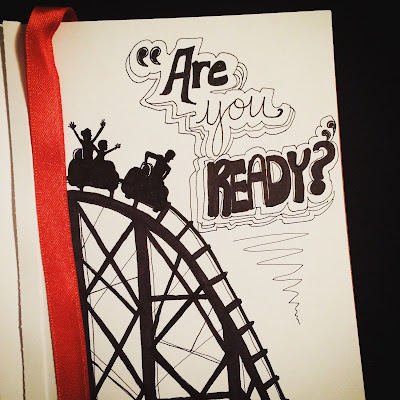 “Are
you
READY?”